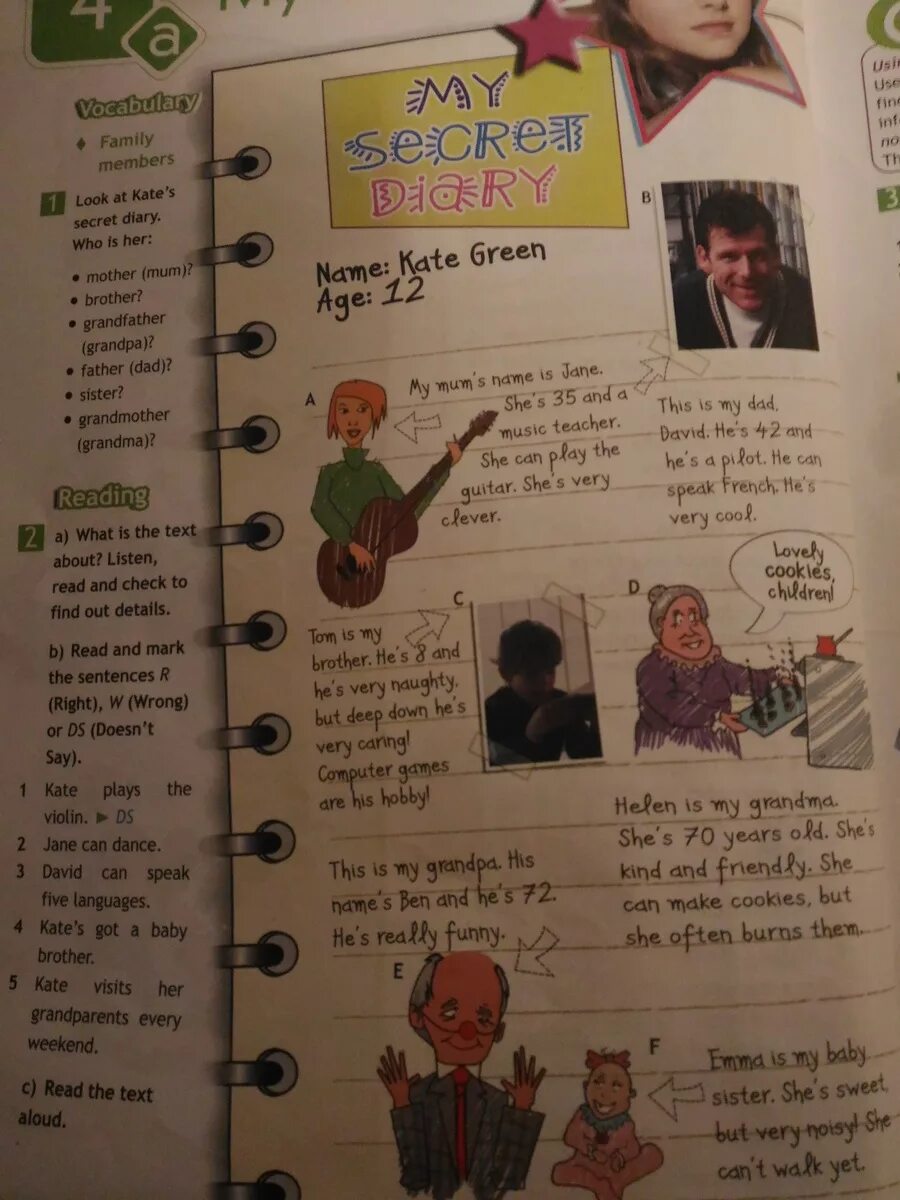 4
a
My
Vocabulary
♦ Family
members
1 Look at Kate's
secret diary.
Who is her:
• mother (mum)?
• brother?
• grandfather
(grandpa)?
• father (dad)?
• sister?
• grandmother
(grandma)?
Reading
2 a) What is the text
about? Listen,
read and check to
find out details.
b) Read and mark
the sentences R
(Right), W (Wrong)
or DS (Doesn't
Say).
1 Kate plays the
violin. ► DS
2 Jane can dance.
3 David can speak
five languages.
4 Kate's got a baby
brother.
5 Kate visits her
grandparents every
weekend.
c) Read the text
aloud.
MY
SECRET
DIARY
Name: Kate Green
Age: 12
A
My mum's name is Jane.
She's 35 and a
music teacher.
She can play the
guitar. She's very
clever.
B
This is my dad,
David. He's 42 and
he's a pilot. He can
speak French. He's
very cool.
C
Tom is my
brother. He's 8 and
he's very naughty,
but deep down he's
very caring!
Computer games
are his hobby!
D
Lovely
cookies,
children!
Helen is my grandma.
She's 70 years old. She's
kind and friendly. She
can make cookies, but
she often burns them.
This is my grandpa. His
name's Ben and he's 72.
He's really funny.
E
F
Emma is my baby
sister. She's sweet
but very noisy! She
can't walk yet.
Use
no
Th
3